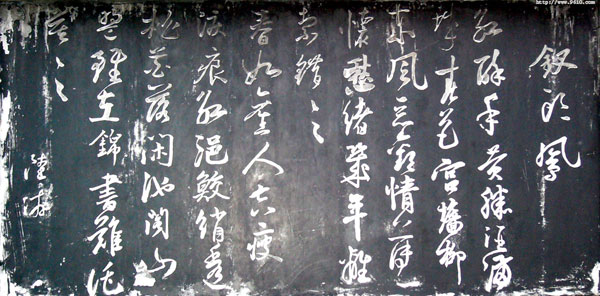 http://www.9610.com
釵頭鳳
紅酥手黃縢酒滿
城春色宮牆柳
東風惡歡情薄一
懷愁緒幾年離
索錯〻〻
春如舊人空瘦
淚痕紅浥鮫綃透
桃花落閑池閣山
盟雖在錦書難託
莫〻〻
陸游